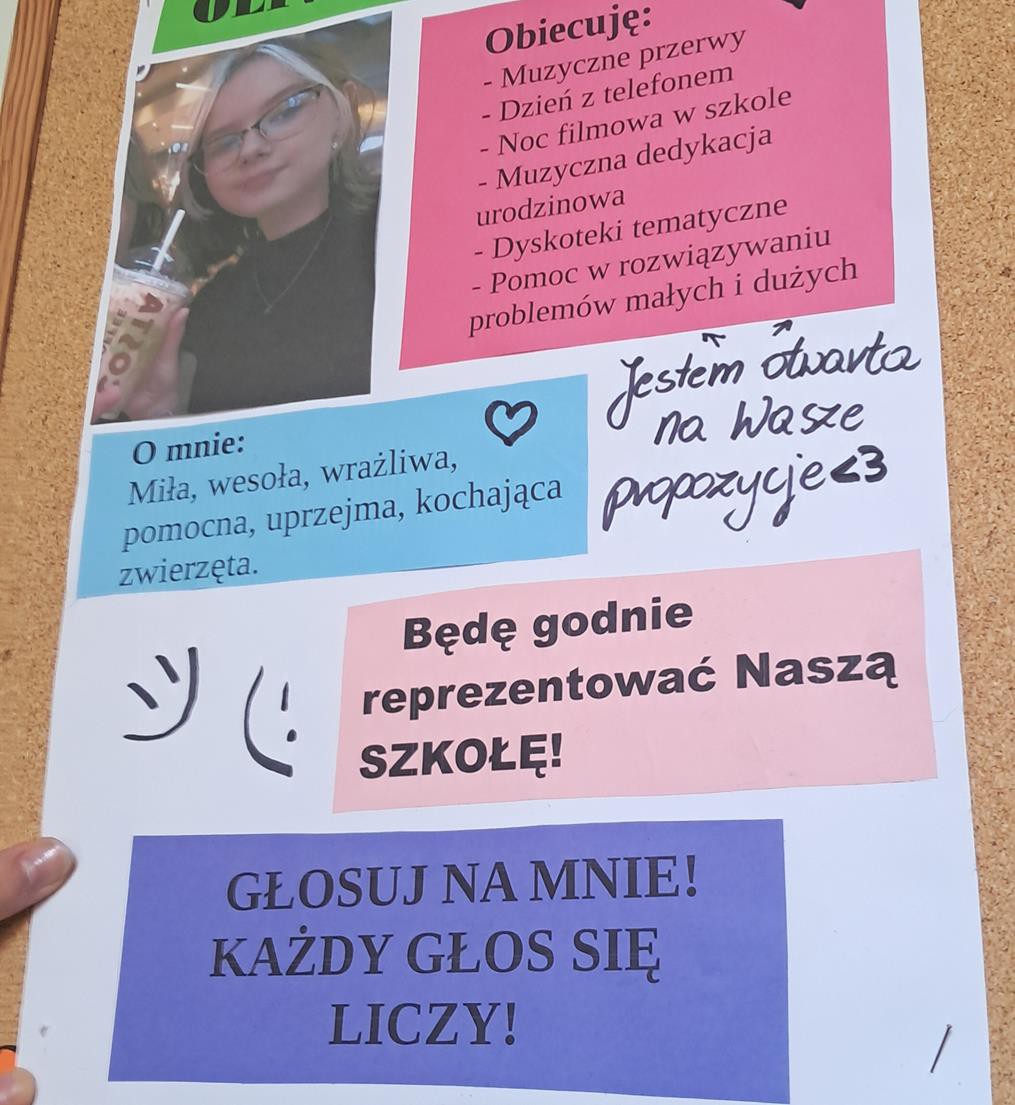 Obiecuję:
- Muzyczne przerwy
- Dzień z telefonem
- Noc filmowa w szkole
- Muzyczna dedykacja
urodzinowa
- Dyskoteki tematyczne
- Pomoc w rozwiązywaniu
problemów małych i dużych
Jestem otwarta
na Wasze
propozycje <3
O mnie:
Miła, wesoła, wrażliwa,
pomocna, uprzejma, kochająca
zwierzęta.
Będę godnie
reprezentować Naszą
SZKOŁĘ!
GŁOSUJ NA MNIE!
KAŻDY GŁOS SIĘ
LICZY!